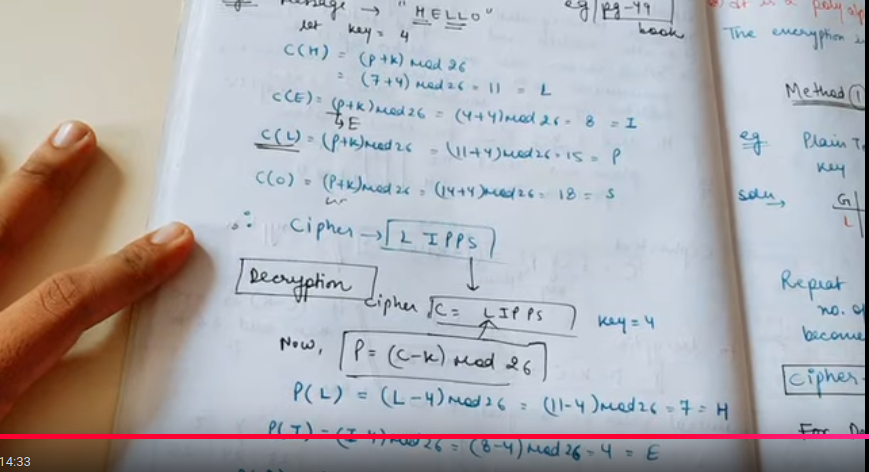 eg Message → "HELLO"
eg/pg-49
book
let key = 4
C(H) = (P+K) mod 26
= (7+4) mod 26 = 11 = L
C(E) = (P+K) mod 26 = (4+4) mod 26 = 8 = I
↳E
C(L) = (P+K) mod 26 = (11+4) mod 26 = 15 = P
C(O) = (P+K) mod 26 = (14+4) mod 26 = 18 = S
∴ Cipher → L I P P S
Decryption
Cipher C = L I P P S key = 4
Now, P = (C-K) mod 26
P(L) = (L-4) mod 26 = (11-4) mod 26 = 7 = H
P(I) = (I-4) mod 26 = (8-4) mod 26 = 4 = E
It is a poly
The encryption
Method 1
eg Plain T
Key
soln→ G
L
Repeat
no. o
become
Cipher
For De
14:33